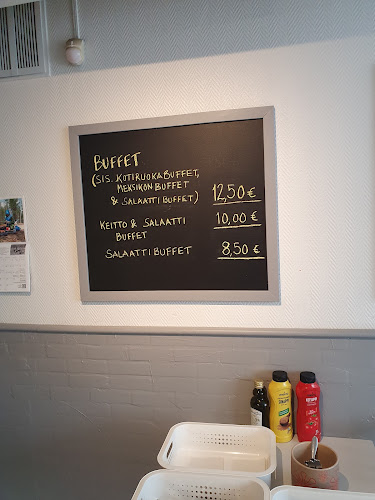 BUFFET
(SIS. KOTIRUOKABUFFET,
MEKSIKON BUFFET
& SALAATTIBUFFET) 12,50 €
KEITTO & SALAATTI 10,00 €
BUFFET
SALAATTIBUFFET 8,50 €